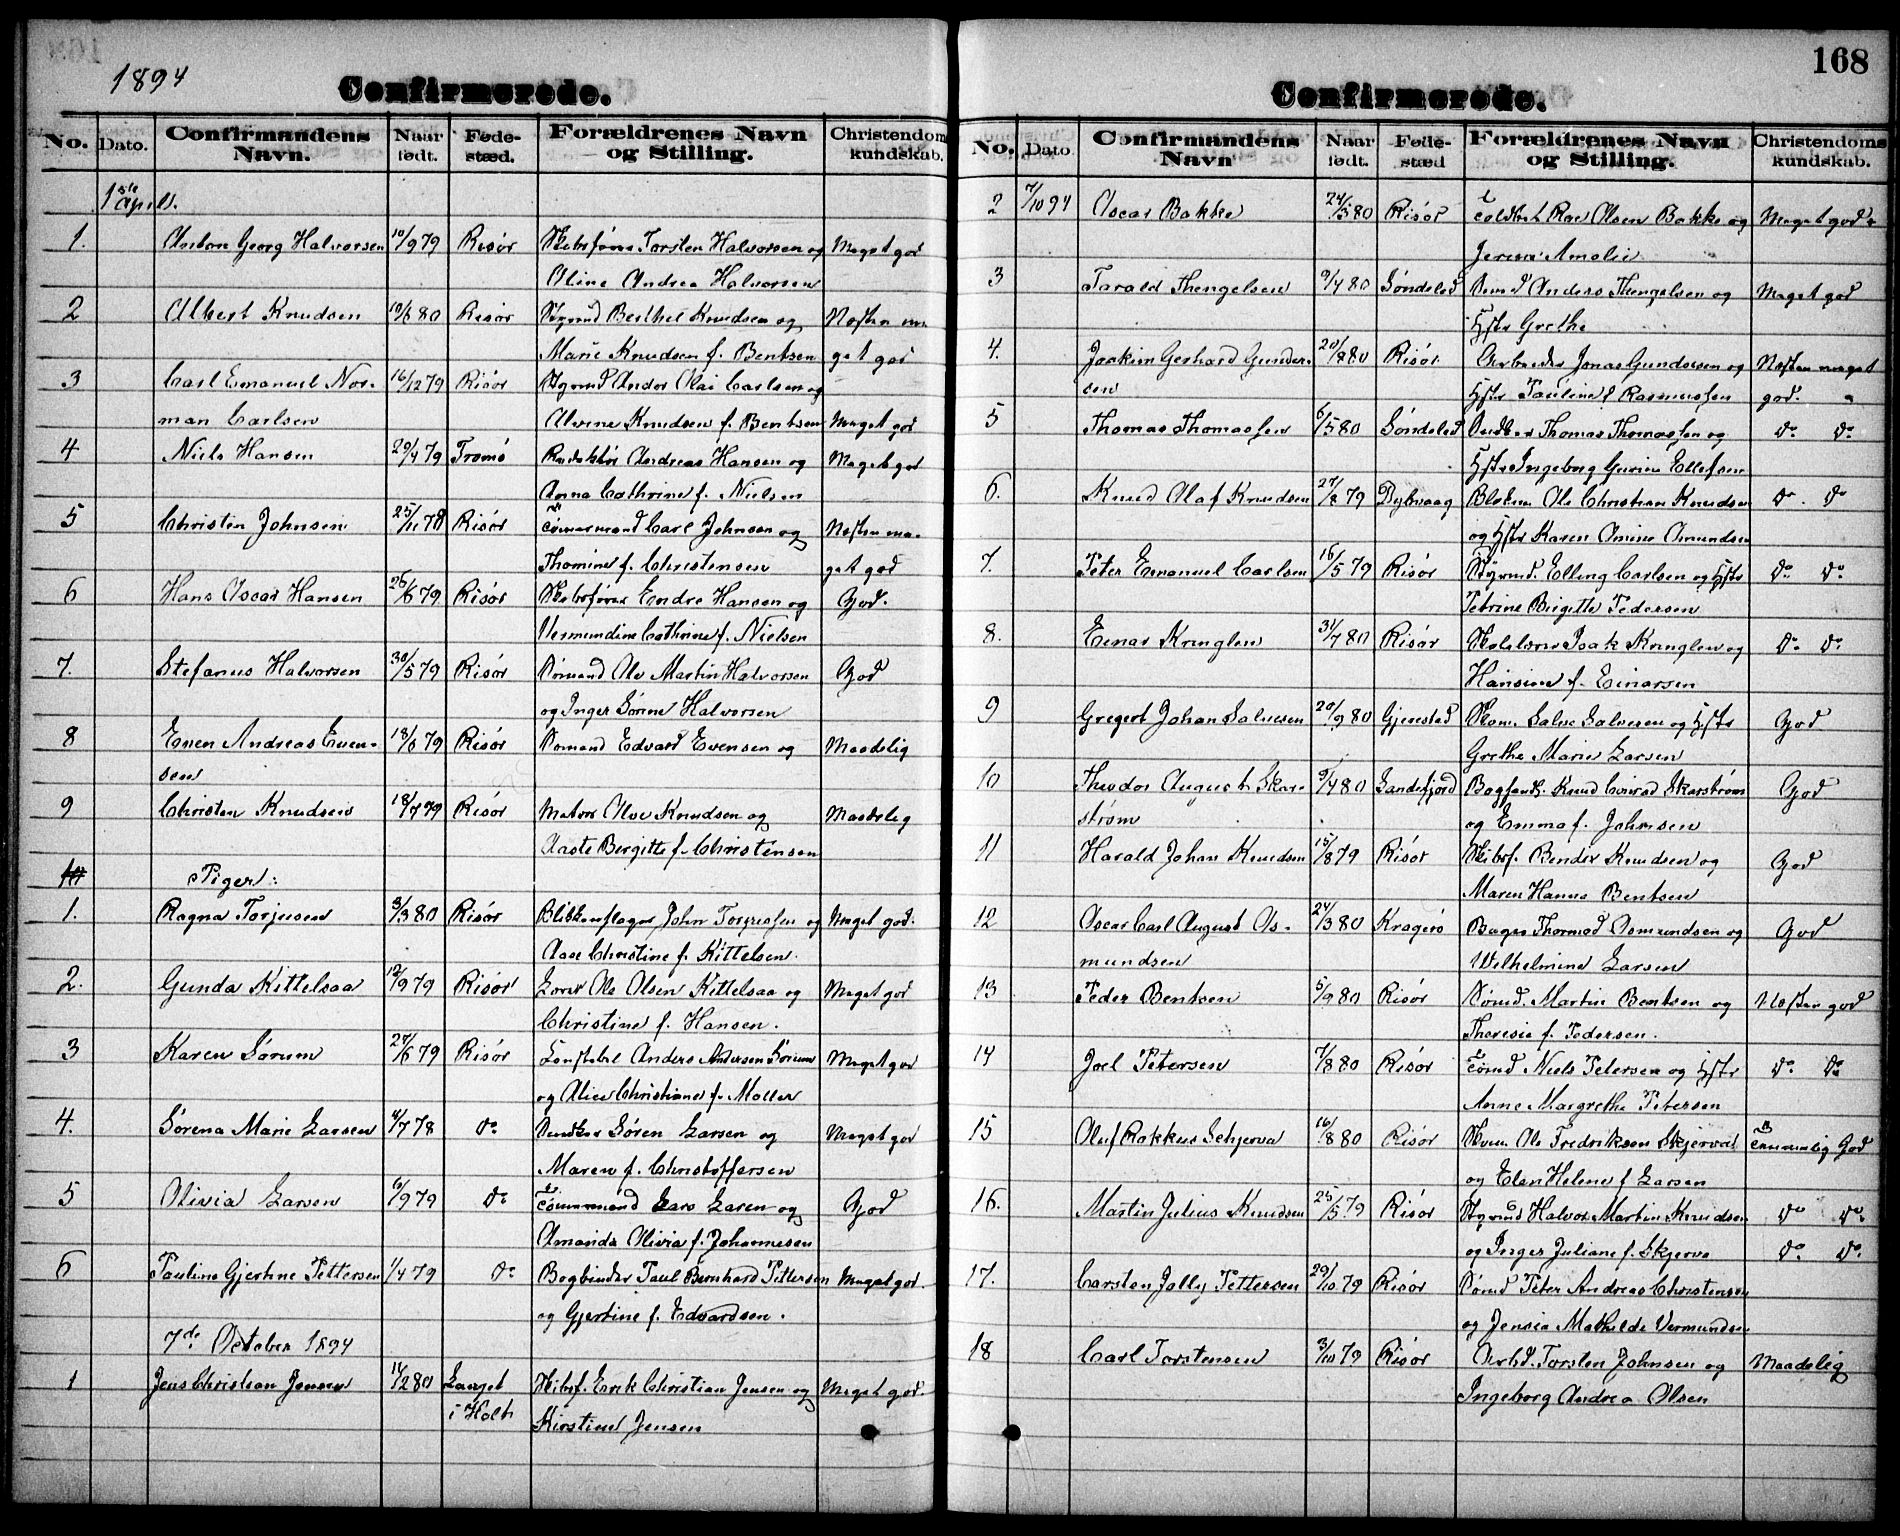 168
1894
Confirmerede.
No. Dato. Confirmandens Navn. Naar født. Føde-stæd. Forældrenes Navn og Stilling. Christendomskundskab.
1ste April.
1. Anton Georg Halvorsen 10/9 79 Risør Skibsfører Torsten Halvorsen og Meget god
Oline Andrea Halvorsen
2 Albert Knudsen 80 Risør Styrmd Berthel Knudsen og Næsten me
Marie Knudsen f. Bentsen get god
3 Carl Emanuel Nor- 16/12 79 Risör Styrmd Andor Olai Carlsen og
man Carlsen Alvine Knudsen f. Bentsen Meget god
4 Niels Hansen 29/4 79 Tromö Redaktör Andreas Hansen og Meget god
Anna Cathrine f. Nielsen
5 Christen Johnsen 25/11 78 Risör Carl Johnsen og Næsten me-
Thomine f. Christensen get god
6 Hans Oscar Hansen 26/6 79 Risör Skibsfører Endre Hansen og God.
Vermundine Cathrine f. Nielsen
7. Stefanus Halvorsen 30/5 79 Risör Sömand Ole Martin Halvorsen God
og Inger Sörine Halvorsen
8 Even Andreas Even- 79 Risör Sömand Edvard Evensen og Maadelig
sen
9 Christen Knudsen 18/7 79 Risör Matros Alve Knudsen og Maadelig
Aaste Bergitte f. Christensen
10 Piger:
1. Ragna Torjusen 3/3 80 Risör Blikkenslager John Torjussen og Meget god.
Aase Christine f. Kittelsen.
2. Gunda Kittelsaa 12/9 79 Risör Ole Olsen Kittelsaa og Meget god
Christine f. Hansen.
3 Karen Sørum 27/6 79 Risör Konstabel Anders Andersen Sörum Meget god
og Christiane f. Möller
4. Sörena Marie Larsen 4/7 78 do Snedker Sören Larsen og Meget god
Maren f. Christoffersen
5 Olivia Larsen 6/9 79 do Tömmermand Lars Larsen og God
Amanda Olivia f. Johannesen
6 Pauline Gjertine Pettersen 1/4 79 do Bogbinder Paul Bernhard Pettersen Meget god.
og Gjertine f. Edvardsen.
7de October 1894
1 Jens Christian Jensen 14/2 80 Langet Skibsf. Erik Christian Jensen og Meget god.
i Holt Kirstine Jensen
Confirmerede.
No. Dato Confirmandens Navn Naar født. Føde-stæd Forældrenes Navn og Stilling. Christendoms kundskab.
2 7/10 94 Oscar Bakke 24/5 80 Risör Olsen Bakke og Meget god
Amalie
3 Tarald Thengelsen 9/4 80 Söndeled Anders Thengelsen og Meget god
Hstr Grethe
4. Joakim Gerhard Gunder- 20/8 80 Risör Arbeider Jonas Gundersen og Næsten meget
sen Hstr Pauline f Rasmussen god.
5 Thomas Thomassen 6/5 80 Söndeled Thomas Thomassen og do do
Hstr Ingeborg Gurine Ellefsen
6. Knud Olaf Knudsen 27/8 79 Dybvaag Ole Christian Knudsen do. do
og Hstr Karen Amundsen
7. Peter Emanuel Carlsen 16/5 79 Risör Styrmd. Elling Carlsen og Hstr do do
Petrine Birgitte Pedersen
8. Einar Kringlen 31/7 80 Risör Skolelærer Isak Kringlen og do do
Hansine f. Einarsen
9 Gregert Johan Salvesen 20/9 80 Gjerestad Skom. Salve Salvesen og Hstr God
Grethe Marie Larsen
10 Theodor August Skar- 9/4 80 Sandefjord Knud Conrad Skarström God
ström og Emma f. Johnsen
11 Harald Johan Knudsen 15/8 79 Risör Skibsf. Bendix Knudsen og God
Maren Hanna Bentsen
12 Oscar Carl August Os- 24/3 80 Kragerö Bager Thormod Osmundsen og God
mundsen Wilhelmine Larsen
13 Peder Bentsen 5/9 80 Risör Sömd. Martin Bentsen og Næsten god
Theresia f. Pedersen.
14 Joel Petersen 7/8 80 Risör Sömd Niels Petersen og Hstr do do
Anne Margrethe Petersen
15 Oluf Rakkus Schjerva 16/8 80 Risör Ole Fredriksen Skjerva Temmelig God
og Elen Helene f Larsen
16. Martin Julius Knudsen 25/5 79 Risör Styrmd Halvor Martin Knudsen do do
og Inger Juliane f. Skjerva do. do.
17. Carsten Jolly Pettersen 29/10 79 Risör Sömd Peter Andreas Christensen
og Jensia Mathilde Vermundsen
18 Carl Torstensen 3/10 79 Risör Arbd. Torsten Johnsen og Maadelig
Ingeborg Andrea Olsen